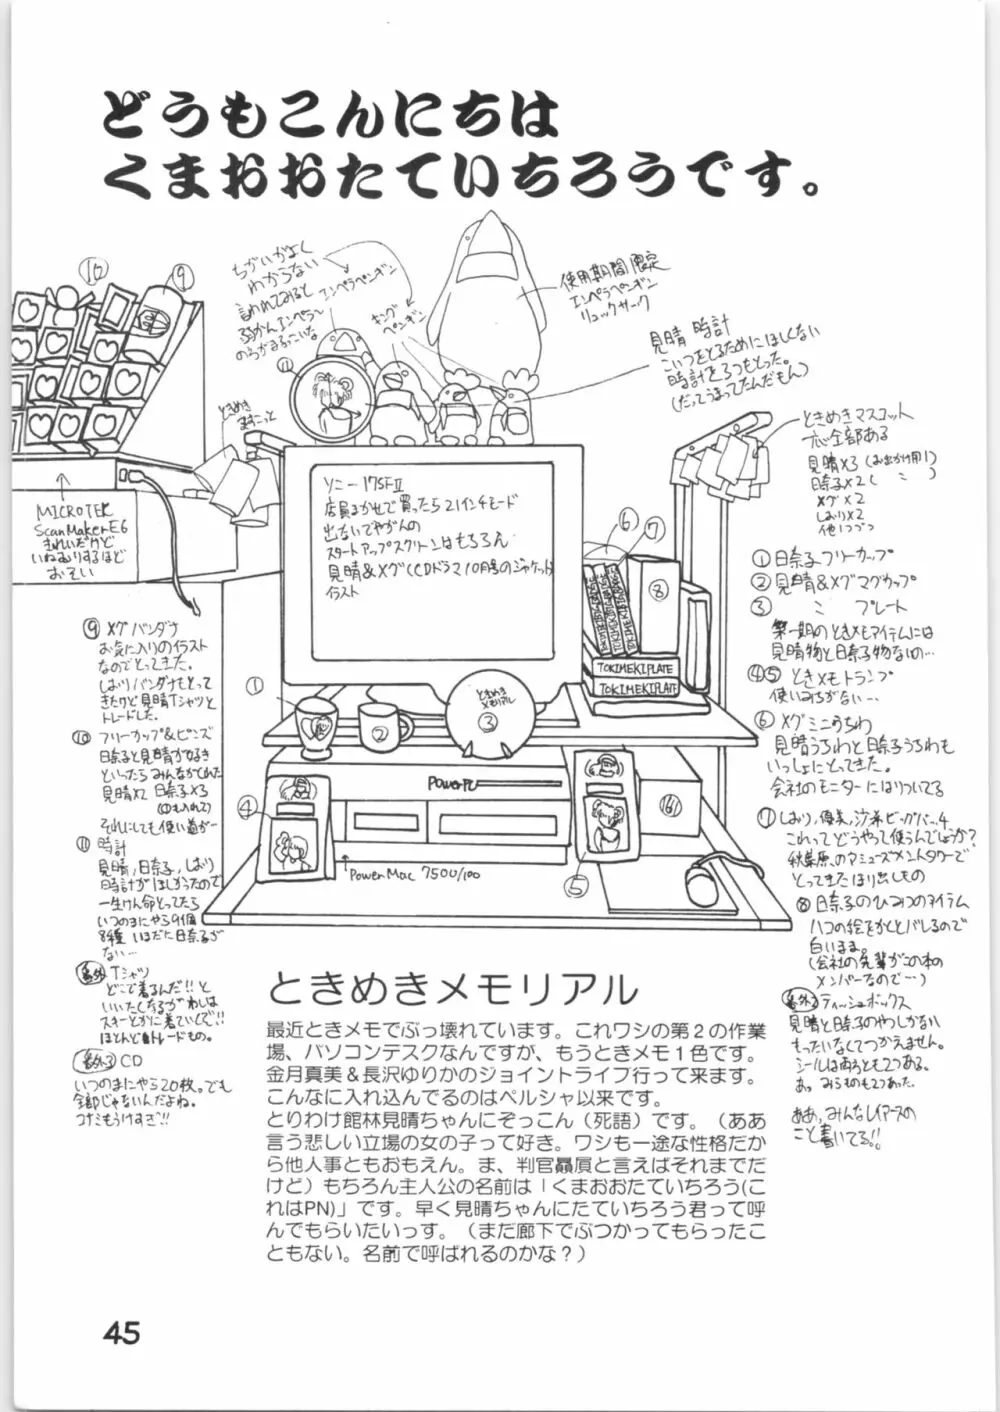 どうもこんにちは
くまおおたていちろうです。
⑩
⑨
ちがいがよく
わからない
言われてみると
エンペラペンギン
キング
ペンギン
使用期間限定
エンペラペンギン
リュックサーク
見晴 時計
こいつをとるためにほしくない
時計を3つもとった。
(だってうまってたんだもん)
⑪
ときめき
ときめきマスコット
全部ある
見晴×3(お出かけ用1)
日奈子×2(〃)
メグ×2
しおり×2
他1つづつ
MICROTEK
ScanMakerE6
きれいだけど
いねむりするほど
おそい
ソニー17SFⅡ
店員まかせで買ったら21インチモード
出ないでやがんの
スタートアップスクリーンはもちろん
見晴&メグ(CDドラマ10月号のジャケット)
イラスト
⑥
⑦
⑧
TOKIMEKIPLATE
TOKIMEKIPLATE
①
②
ときめき
メモリアル
③
④
PowerPC
⑤
PowerMac 7500/100
①日奈子フリーカップ
②見晴&メグマグカップ
③ 〃 プレート
第一期のときメモアイテムには
見晴物と日奈子物ないの…
④⑤ときメモトランプ
使いみちがない…
⑥メグミニうちわ
見晴うちわと日奈子うちわも
いっしょにとってきた。
会社のモニターにはりついてる
⑦しおり,優美,沙希ビッグバー…4
これってどうやって使うんでしょうか?
秋葉原のアミューズメントタワーで
とってきたほり出しもの
⑧日奈子のひみつのアイテム
ハコの絵をかくとバレるので
白いまま。
(会社の先輩がこの本の
メンバーなので…)
番外2ティッシュボックス
見晴と日奈子のやつしかない
もったいなくてつかえません。
シールは両ろとも2つある。
あっ みらものも2つあった。
ああ,みんなレイアースの
こと書いてる!!
⑨メグバンダナ
お気に入りのイラスト
なのでとってきた。
しおりバンダナもとって
きたけど見晴Tシャツと
トレードした。
⑩フリーカップ&ピンズ
日奈子と見晴が好き
といったらみんながくれた
見晴×2 日奈子×3
それにしても使い道が…
⑪時計
見晴,日奈子,しおり
時計がほしかったので
一生けん命とってたら
いつのまにやら9個
8種 いまだに日奈子が
ない…
番外Tシャツ
どこで着るんだ!!と
いいたくなるがわしは
スキーとかに着ていくぞ!!
ほとんどトレードもの。
番外3CD
いつのまにやら20枚。でも
全部じゃないんだよね。
コナミもうけすぎ!!
ときめきメモリアル
最近ときメモでぶっ壊れています。これワシの第2の作業
場、パソコンデスクなんですが、もうときメモ1色です。
金月真美&長沢ゆりかのジョイントライブ行って来ます。
こんなに入れ込んでるのはペルシャ以来です。
とりわけ館林見晴ちゃんにぞっこん(死語)です。(ああ
言う悲しい立場の女の子って好き。ワシも一途な性格だか
ら他人事ともおもえん。ま、判官贔屓と言えばそれまでだ
けど)もちろん主人公の名前は「くまおおたていちろう(こ
れはPN)」です。早く見晴ちゃんにたていちろう君って呼
んでもらいたいっす。(まだ廊下でぶつかってもらったこ
ともない。名前で呼ばれるのかな?)
45